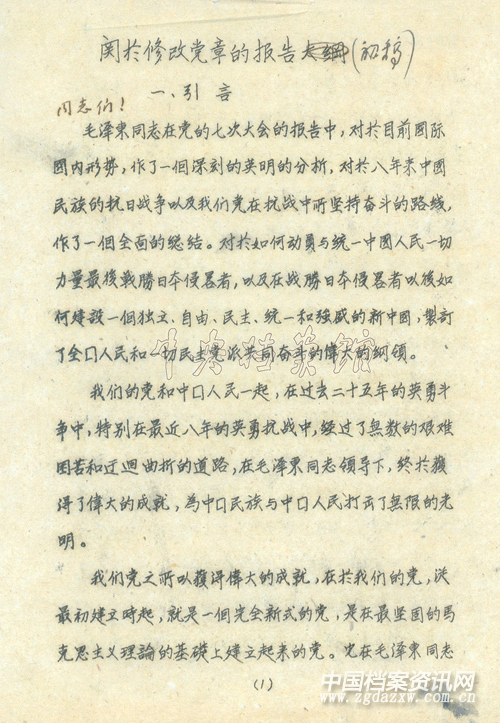 関於修改党章的报告大綱(初稿)
一、引言
同志们！
毛泽東同志在党的七次大会的报告中，对於目前国际
国内形势，作了一個深刻的英明的分析，对於八年来中國
民族的抗日战争以及我们党在抗战中所坚持奋斗的路线，
作了一個全面的總结。对於如何动員与统一中國人民一切
力量最後戰勝日本侵畧者，以及在战勝日本侵畧者以後如
何建設一個独立、自由、民主、统一和强盛的新中國，製訂
了全囗人民和一切民主党派共同奋斗的偉大的綱領。
我们的党和中囗人民一起，在过去二十五年的英勇斗
争中，特别在最近八年的英勇抗战中，經过了無数的艰难
困苦和迂迴曲折的道路，在毛泽東同志领导下，終於獲
得了偉大的成就，為中囗民族与中囗人民打开了無限的光
明。
我们党之所以獲得偉大的成就，在於我们的党，从
最初建立時起，就是一個完全新式的党，是在最坚固的馬
克思主义理論的基礎上建立起来的党。它在毛泽東同志
(1)
中央档案馆
中国档案资讯网
www.zgdazxw.com.cn